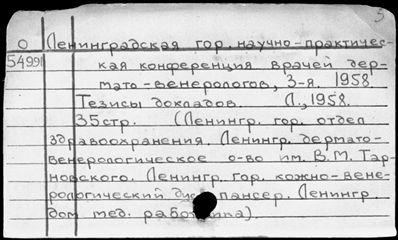 5
О Ленинградская гор. научно-практичес-
54991 кая конференция врачей дер-
мато-венерологов, 3-я. 1958
Тезисы докладов. Л., 1958.
35стр. (Ленингр. гор. отдел
здравоохранения. Ленингр. дермато-
венерологическое о-во им. В.М. Тар-
новского. Ленингр. гор. кожно-вене-
рологический диспансер. Ленингр.
дом мед. работника).